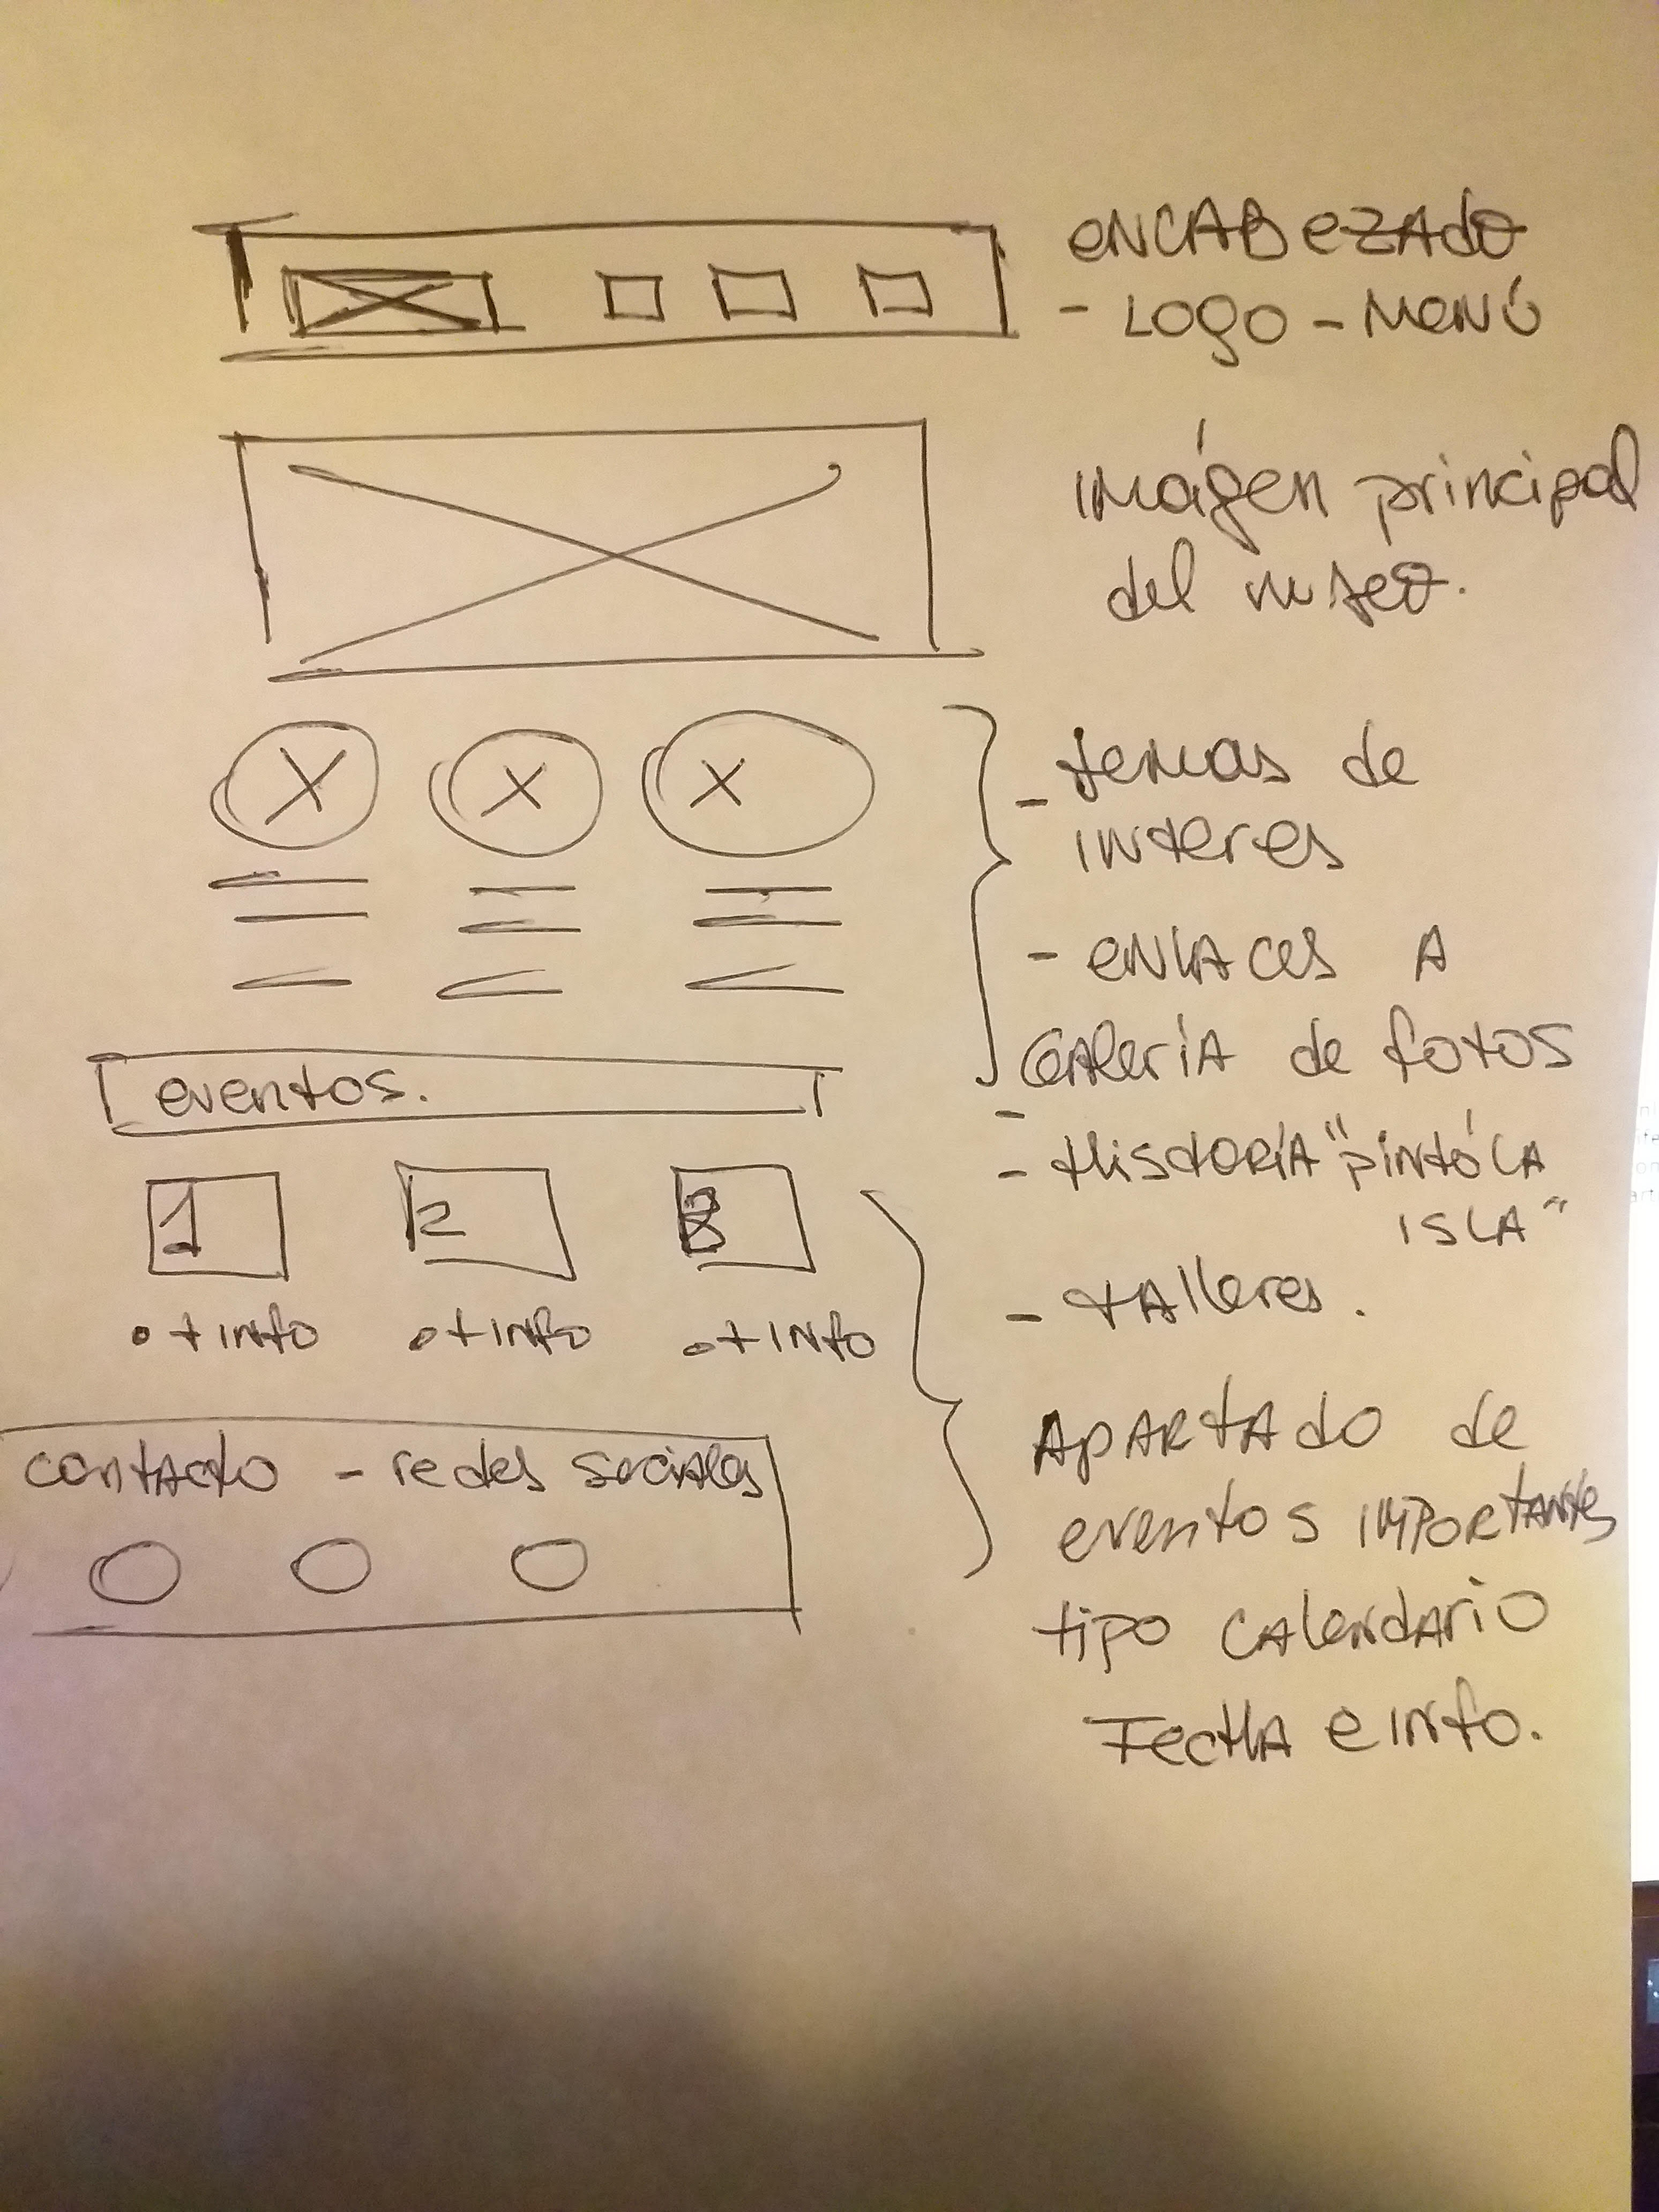 eNCABeZAdo
- LOGO - MeNÚ
imágen principal
del museo.
- temas de
interes
- eNlAces A
GAleríA de fotos
-
- HistoRíA "pintó lA
ISLA"
- tAlleres.
eventos.
1 2 3
• + info • + info • + info
ApARtAdo de
eventos IMPORTANtes
tipo CAlendArio
FecHA e info.
contActo - redes sociAles